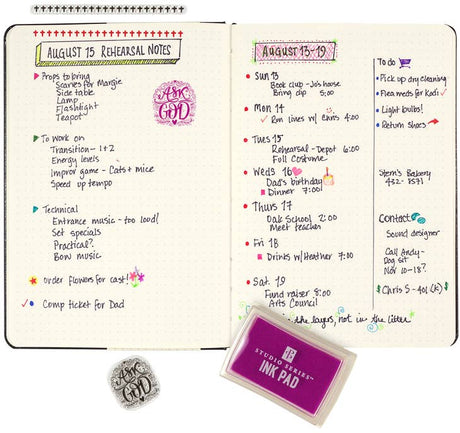 AUGUST 15 REHEARSAL NOTES
Props to bring
Scarves for Margie
Side table
Lamp
Flashlight
Teapot
ASK GOD
To Work on
Transition - 1+2
Energy levels
Improv game - Cats + mice
Speed up tempo
Technical
Entrance music - too loud!
Set specials
Practical?
Bow music
Order flowers for cast!
Comp ticket for Dad
AUGUST 13-19
Sun 13
Book club - Jo's house
Bring dip 5:00
Mon 14
Run lines w/ Chris 4:00
Tues 15
Rehearsal - Depot 6:00
Full Costume
Weds 16
Dad's birthday
Dinner 7:00
Thurs 17
Oak School 2:00
Meet teacher
Fri 18
Drinks w/ Heather 7:00
Sat. 19
Fund raiser 8:00
Arts Council
in the layers, not in the litter
To do
Pick up dry cleaning
Flea meds for Kodi
Light bulbs!
Return Shoes
Stern's Bakery
432-8571
Contact
Sound designer
Call Andy -
Dog sit
Nov 10-18?
Chris S - 401(k)
ASK GOD
STUDIO SERIES™
INK PAD